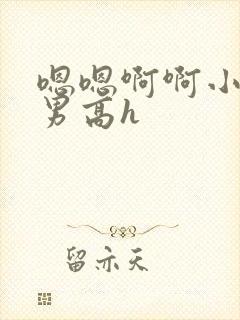 嗯嗯啊啊小
男高h
留亦天